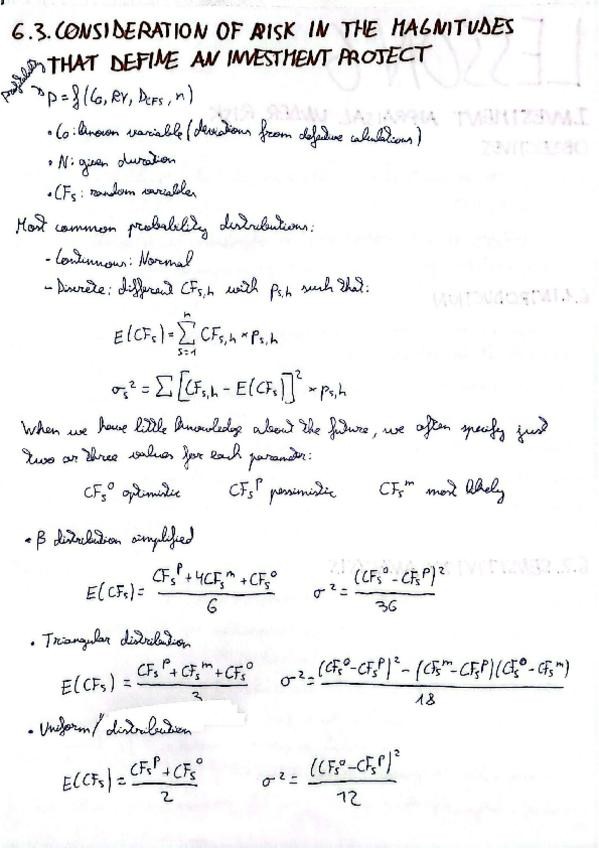 6.3. CONSIDERATION OF RISK IN THE MAGNITUDES
THAT DEFINE AN INVESTMENT PROJECT
probability
P = f(C₀, RV, DCFs, n)
• C₀: known variable (deviations from defective calculations)
• N: given duration
• CFs: random variables
Most common probability distributions:
- Continuous: Normal
- Discrete: different CFs,h with Ps,h such that:
E(CFs) = Σ CFs,h × Ps,h
n
s=1
σs² = Σ [CFs,h - E(CFs)]² × Ps,h
When we have little knowledge about the future, we often specify just
two or three values for each parameter:
CFs° optimistic CFsᵖ pessimistic CFsᵐ most likely
• β distribution simplified
E(CFs) = (CFsᵖ + 4CFsᵐ + CFs°) / 6 σ² = (CFs° - CFsᵖ)² / 36
• Triangular distribution
E(CFs) = (CFsᵖ + CFsᵐ + CFs°) / 3 σ² = ((CFs° - CFsᵖ)² - (CFsᵐ - CFsᵖ)(CFs° - CFsᵐ)) / 18
• Uniform distribution
E(CFs) = (CFsᵖ + CFs°) / 2 σ² = (CFs° - CFsᵖ)² / 12